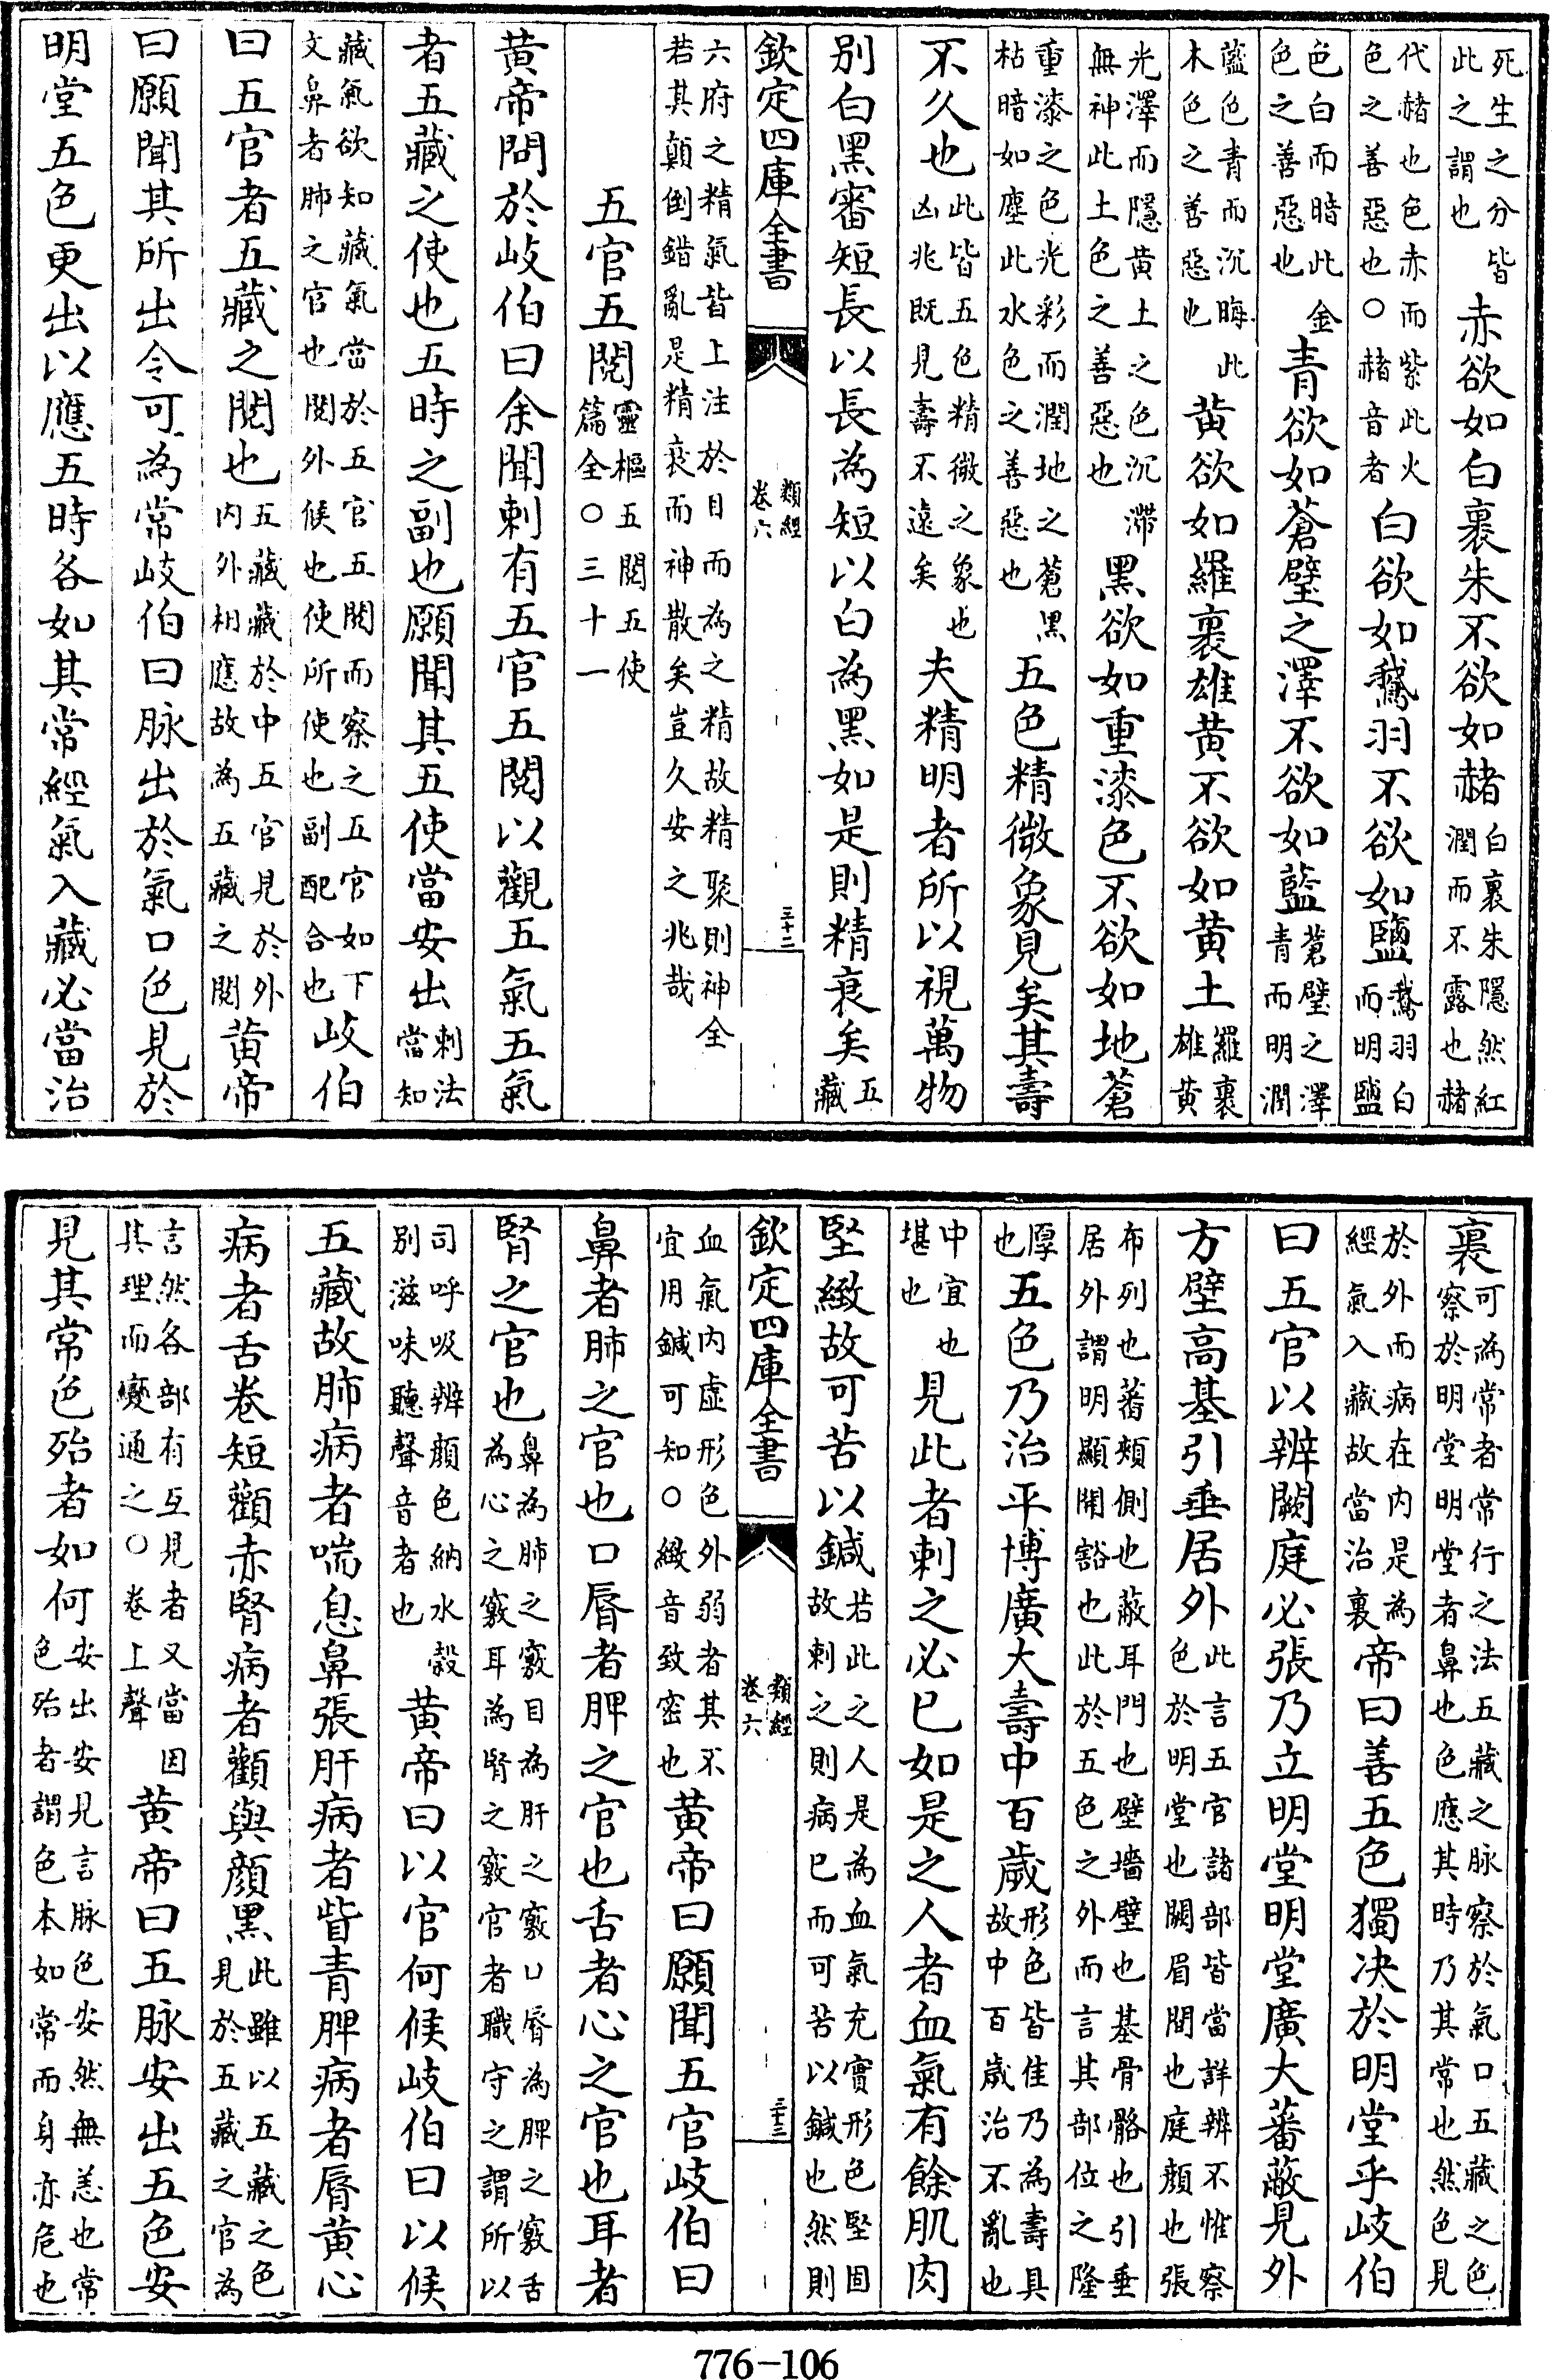 死生之分皆此之謂也赤欲如白裹朱不欲如赭白裹朱隱然紅潤而不露也赭
代赭也色赤而紫此火色之善惡也○赭音者白欲如鵝羽不欲如鹽鵝羽白而明鹽
色白而暗此金色之善惡也青欲如蒼璧之澤不欲如藍蒼璧之澤青而明潤
藍色青而沉晦此木色之善惡也黄欲如羅裹雄黄不欲如黄土羅裹雄黄
光澤而隱黄土之色沉滯無神此土色之善惡也黑欲如重漆色不欲如地蒼
重漆之色光彩而潤地之蒼黑枯暗如塵此水色之善惡也五色精微象見矣其壽
不久也此皆五色精微之象也凶兆既見壽不遠矣夫精明者所以視萬物
别白黑審短長以長為短以白為黑如是則精衰矣五藏
欽定四庫全書 類經 卷六 三十二
六府之精氣皆上注於目而為之精故精聚則神全若其顛倒錯亂是精衰而神散矣豈久安之兆哉
五官五閱靈樞五閱五使篇全○三十一
黄帝問於岐伯曰余聞刺有五官五閱以觀五氣五氣
者五藏之使也五時之副也願聞其五使當安出刺法當知
藏氣欲知藏氣當於五官五閱而察之五官如下文鼻者肺之官也閱外候也使所使也副配合也岐伯
曰五官者五藏之閱也五藏藏於中五官見於外内外相應故為五藏之閱黄帝
曰願聞其所出令可為常岐伯曰脉出於氣口色見於
明堂五色更出以應五時各如其常經氣入藏必當治
裏可為常者常行之法五藏之脉察於氣口五藏之色察於明堂明堂者鼻也色應其時乃其常也然色見
於外而病在内是為經氣入藏故當治裏帝曰善五色獨决於明堂乎岐伯
曰五官以辨闕庭必張乃立明堂明堂廣大蕃蔽見外
方壁高基引垂居外此言五官諸部皆當詳辨不惟察色於明堂也闕眉間也庭顔也張
布列也蕃頰側也蔽耳門也壁墻壁也基骨骼也引垂居外謂明顯開豁也此於五色之外而言其部位之隆
厚也五色乃治平博廣大壽中百歲形色皆佳乃為壽具故中百歲治不亂也
中宜也堪也見此者刺之必已如是之人者血氣有餘肌肉
堅緻故可苦以鍼若此之人是為血氣充實形色堅固故刺之則病已而可苦以鍼也然則
欽定四庫全書 類經 卷六 三十三
血氣内虛形色外弱者其不宜用鍼可知○緻音致密也黄帝曰願聞五官岐伯曰
鼻者肺之官也口脣者脾之官也舌者心之官也耳者
腎之官也鼻為肺之竅目為肝之竅口脣為脾之竅舌為心之竅耳為腎之竅官者職守之謂所以
司呼吸辨顔色納水穀别滋味聽聲音者也黄帝曰以官何候岐伯曰以候
五藏故肺病者喘息鼻張肝病者眥青脾病者脣黄心
病者舌卷短顴赤腎病者顴與顔黑此雖以五藏之色見於五藏之官為
言然各部有互見者又當因其理而變通之○卷上聲黄帝曰五脉安出五色安
見其常色殆者如何安出安見言脉色安然無恙也常色殆者謂色本如常而身亦危也
776-106